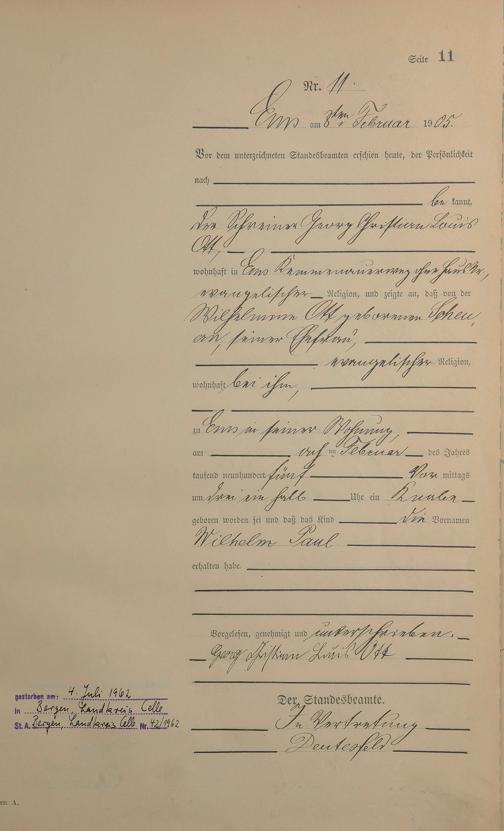 Seite 11
Nr. 11.
Ems am 8ten Februar 1905.
Vor dem unterzeichneten Standesbeamten erschien heute, der Persönlichkeit
nach
be kannt,
der Schreiner Georg Christian Louis
Ott,
wohnhaft in Ems Kemmenauerweg ohne Haus Nr,
evangelischer Religion, und zeigte an, daß von der
Wilhelmine Ott geborenen Scheu,
seiner Ehefrau,
evangelischer Religion,
wohnhaft bei ihm,
zu Ems in seiner Wohnung,
am acht ten Februar des Jahres
tausend neunhundert fünf Vor mittags
um drei ein halb Uhr ein Knabe
geboren worden sei und daß das Kind die Vornamen
Wilhelm Paul
erhalten habe.
Vorgelesen, genehmigt und unterschrieben.
Georg Christian Louis Ott
Der Standesbeamte.
In Vertretung
gestorben am: 4. Juli 1962
in Bergen, Landkreis Celle
St. A. Bergen, Landkreis Celle Nr. 42/1962